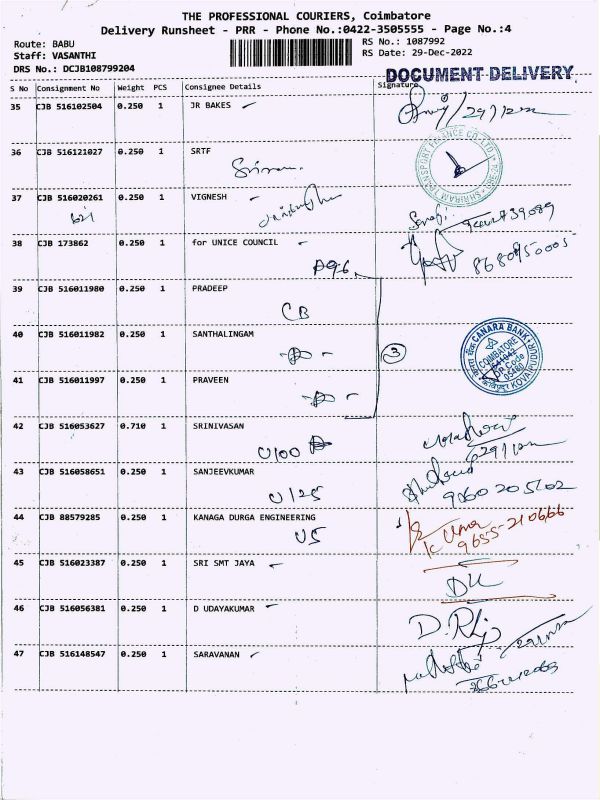 THE PROFESSIONAL COURIERS, Coimbatore
Delivery Runsheet - PRR - Phone No.:0422-3505555 - Page No.:4
Route: BABU
RS No.: 1087992
Staff: VASANTHI
RS Date: 29-Dec-2022
DRS No.: DCJB108799204
DOCUMENT DELIVERY
S No Consignment No Weight PCS Consignee Details Signature
35 CJB 516102504 0.250 1 JR BAKES
36 CJB 516121027 0.250 1 SRTF
37 CJB 516020261 0.250 1 VIGNESH
38 CJB 173862 0.250 1 for UNICE COUNCIL
8680950005
39 CJB 516011980 0.250 1 PRADEEP
CB
40 CJB 516011982 0.250 1 SANTHALINGAM
3
CANARA BANK
COIMBATORE
41 CJB 516011997 0.250 1 PRAVEEN
42 CJB 516053627 0.710 1 SRINIVASAN
U100
43 CJB 516058651 0.250 1 SANJEEVKUMAR
U125
44 CJB 88579285 0.250 1 KANAGA DURGA ENGINEERING
U5
9655-210666
45 CJB 516023387 0.250 1 SRI SMT JAYA
46 CJB 516056381 0.250 1 D UDAYAKUMAR
47 CJB 516148547 0.250 1 SARAVANAN